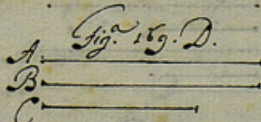 Fig.ᵃ 169. D.
A.
B
C